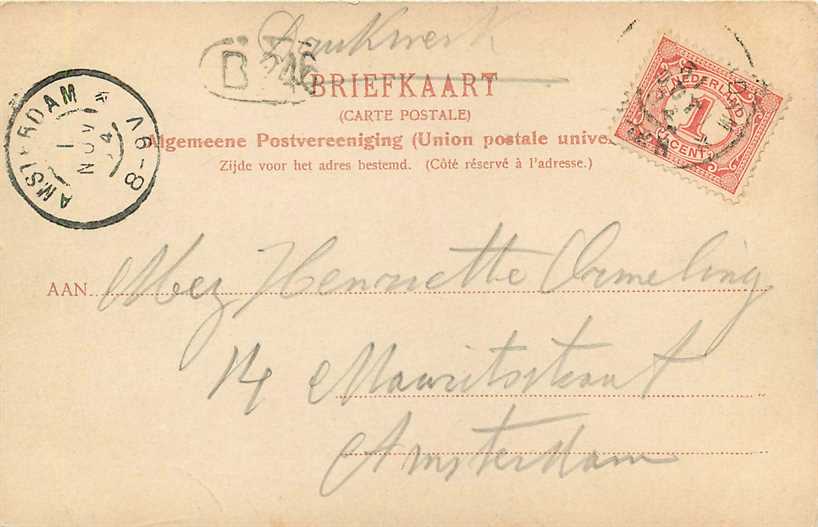 Drukwerk
B 246
BRIEFKAART
(CARTE POSTALE)
Algemeene Postvereeniging (Union postale unive
Zijde voor het adres bestemd. (Côté réservé à l'adresse.)
AMSTERDAM
1 NOV 4
6-8V
NEDERLAND
1
CENT
AAN Mej Henriette Ormeling
14 Mauritsstraat
Amsterdam